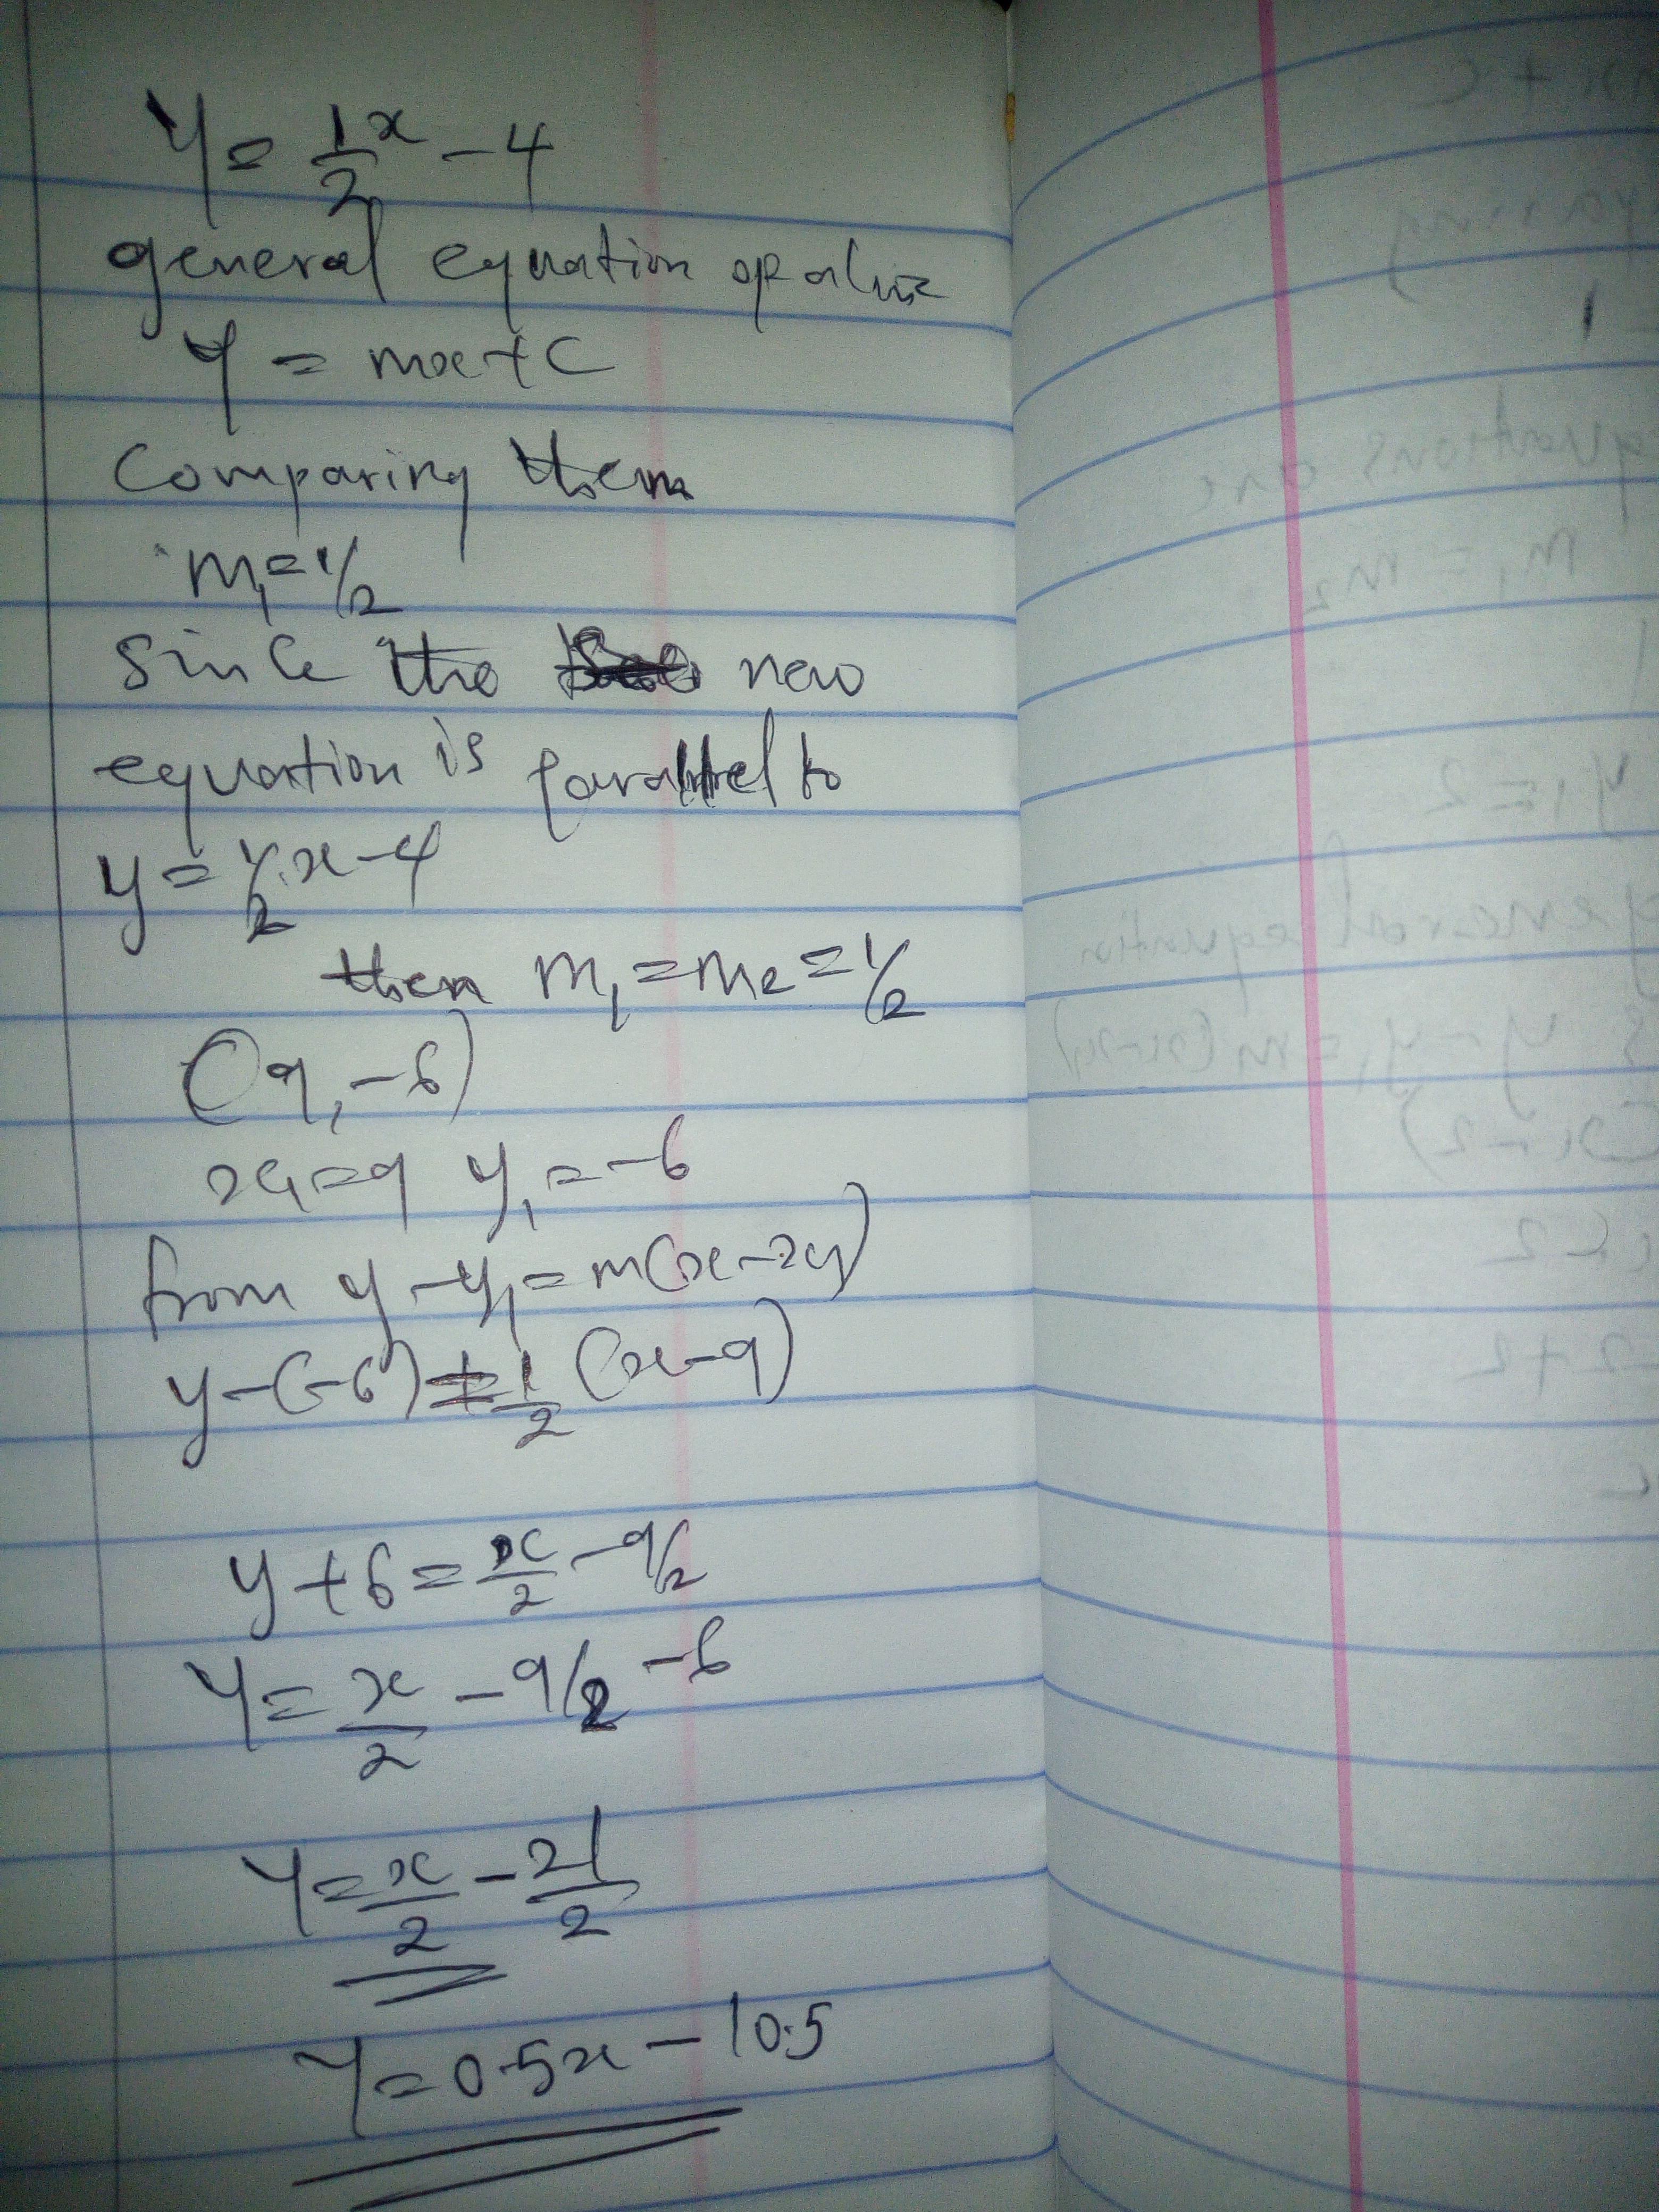 y = 1/2 x - 4
general equation of a line
y = mx + c
Comparing them
m₁ = 1/2
Since the new
equation is parallel to
y = 1/2 x - 4
then m₁ = m₂ = 1/2
(9, -6)
x₁ = 9 y₁ = -6
from y - y₁ = m(x - x₁)
y - (-6) = 1/2 (x - 9)
y + 6 = x/2 - 9/2
y = x/2 - 9/2 - 6
y = x/2 - 21/2
y = 0.5x - 10.5